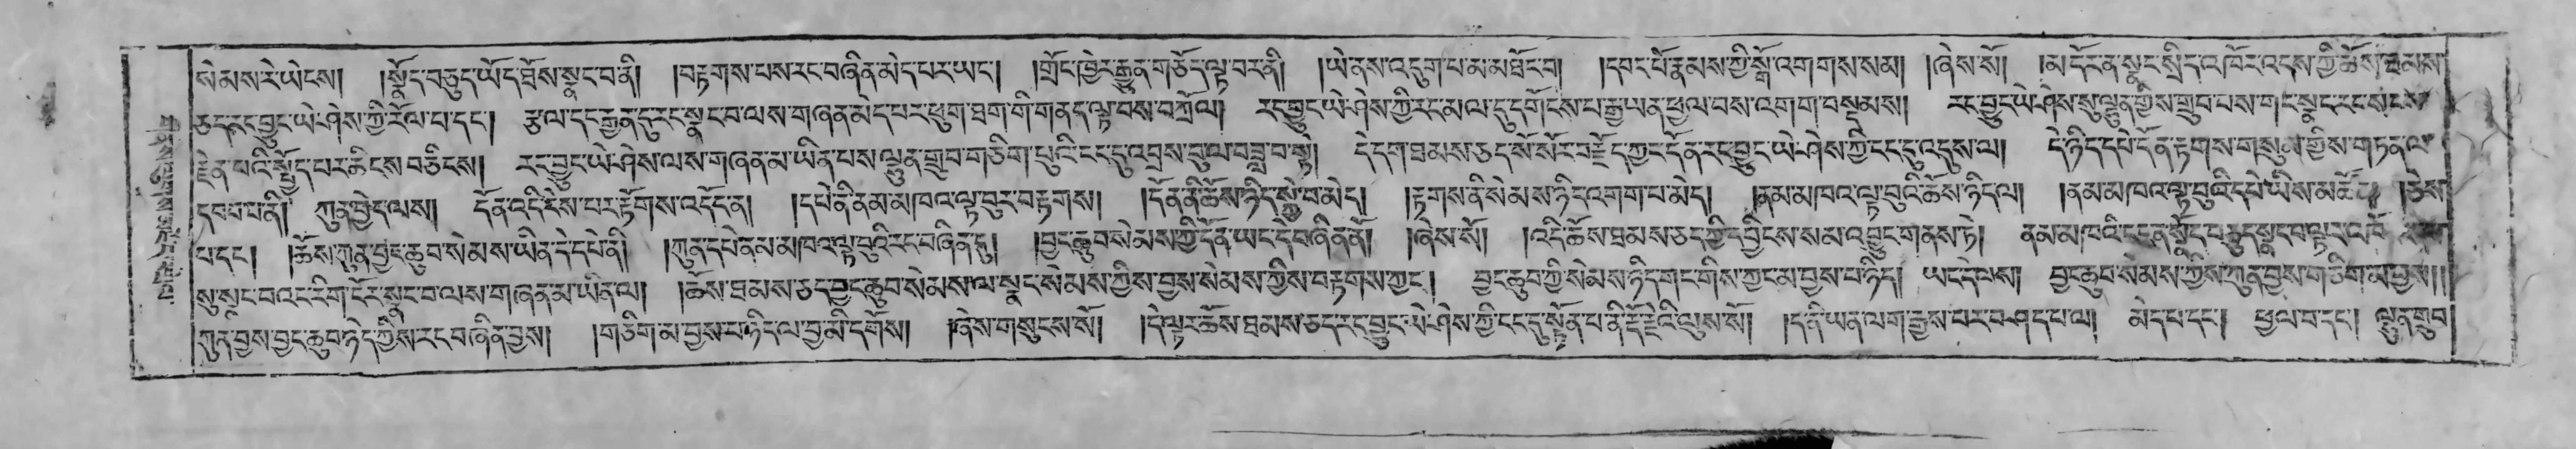 སེམས་རེ་ཡེངས། །སྣོད་བཅུད་ཡོད་ཐོས་སྣང་བ་ནི། །བརྟགས་པས་རང་བཞིན་མེད་པར་ཡང་། །གྲོང་ཁྱེར་རྒྱུན་གཅོད་ལྟ་བར་ནི། །ཡེ་ནས་འདུག་པ་མ་མཐོང་བ། །དབང་པོ་རྣམས་ཀྱི་སྒོ་འགགས་སམ། །ཞེས་སོ། །མདོར་ན་སྣང་སྲིད་འཁོར་འདས་ཀྱི་ཆོས་ཐམས་
ཅད་རང་བྱུང་ཡེ་ཤེས་ཀྱི་རོལ་པ་དང་། རྩལ་དང་རྒྱན་དུ་རང་སྣང་བ་ལས་གཞན་མེད་པར་ཕུག་ཐག་གི་གནད་ལྟ་བས་བཀྲོལ། རང་བྱུང་ཡེ་ཤེས་ཀྱི་རང་མལ་དུ་དགོངས་པ་རྒྱ་ཡན་ཕྱལ་བས་འགག་བསྡམས། རང་བྱུང་ཡེ་ཤེས་སུ་ལྷུན་གྱིས་གྲུབ་པས་གང་སྣང་རང་སངས་
རྗེན་པའི་སྤྱོད་པར་ཆིངས་བཅིངས། རང་བྱུང་ཡེ་ཤེས་ལས་གཞན་མ་ཡིན་པས་ལྷུན་གྲུབ་གཅིག་པུའི་ངང་དུ་འབྲས་བུ་ལ་བཟླ་བ་སྟེ། དེ་དག་ཐམས་ཅད་སོ་སོར་བརྗོད་ཀྱང་དོན་རང་བྱུང་ཡེ་ཤེས་ཀྱི་ངང་དུ་འདུས་ལ། དེ་ཉིད་དཔེ་དོན་རྟགས་གསུམ་གྱིས་གཏན་ལ་
དབབ་པ་ནི། ཀུན་བྱེད་ལས། དོན་འདི་ངེས་པར་རྟོགས་འདོད་ན། །དཔེ་ནི་ནམ་མཁའ་ལྟ་བུར་བརྟགས། །དོན་ནི་ཆོས་ཉིད་སྐྱེ་བ་མེད། །རྟགས་ནི་སེམས་ཉིད་འགག་པ་མེད། །ནམ་མཁའ་ལྟ་བུའི་ཆོས་ཉིད་ལ། །ནམ་མཁའ་ལྟ་བུའི་དཔེ་ཡིས་མཚོན། །ཅེས་
པ་དང་། །ཆོས་ཀུན་བྱང་ཆུབ་སེམས་ཡིན་དེ་དཔེ་ནི། །ཀུན་དཔེ་ནམ་མཁའ་ལྟ་བུའི་རང་བཞིན་དུ། །བྱང་ཆུབ་སེམས་ཀྱི་དོན་ཡང་དེ་བཞིན་ནོ། །ཞེས་སོ། །འདི་ཆོས་ཐམས་ཅད་ཀྱི་དབྱིངས་སམ་འབྱུང་གནས་ཏེ། ནམ་མཁའི་ངང་ན་སྣོད་བཅུད་སྣང་བ་ལྟར་
སུ་སྣང་བའང་རིག་ངོར་སྣང་བ་ལས་གཞན་མ་ཡིན་ལ། །ཆོས་ཐམས་ཅད་བྱང་ཆུབ་སེམས་ལ་སྣང་སེམས་ཀྱིས་བྱས་སེམས་ཀྱིས་བརྟགས་ཀྱང་། བྱང་ཆུབ་ཀྱི་སེམས་ཉིད་གང་གིས་ཀྱང་མ་བྱས་པ་ཉིད། ཡང་དེ་ལས། བྱང་ཆུབ་སེམས་ཀྱིས་ཀུན་བྱས་གཅིག་མ་བྱས།།།
ཀུན་བྱས་བྱང་ཆུབ་ཉེད་ཀྱིས་རང་བཞིན་བྱས། །གཅིག་མ་བྱས་པ་ཉིད་ལ་བྱ་མི་དགོས། །ཞེས་གསུངས་སོ། །དེ་ལྟར་ཆོས་ཐམས་ཅད་རང་བྱུང་ཡེ་ཤེས་ཀྱི་ངང་དུ་སྟོན་པ་ནི་རྡོ་རྗེའི་ལུས་སོ། །ད་ནི་ཡན་ལག་རྒྱས་པར་བཤད་པ་ལ། མེད་པ་དང་། ཕྱལ་བ་དང་། ལྷུན་གྲུབ